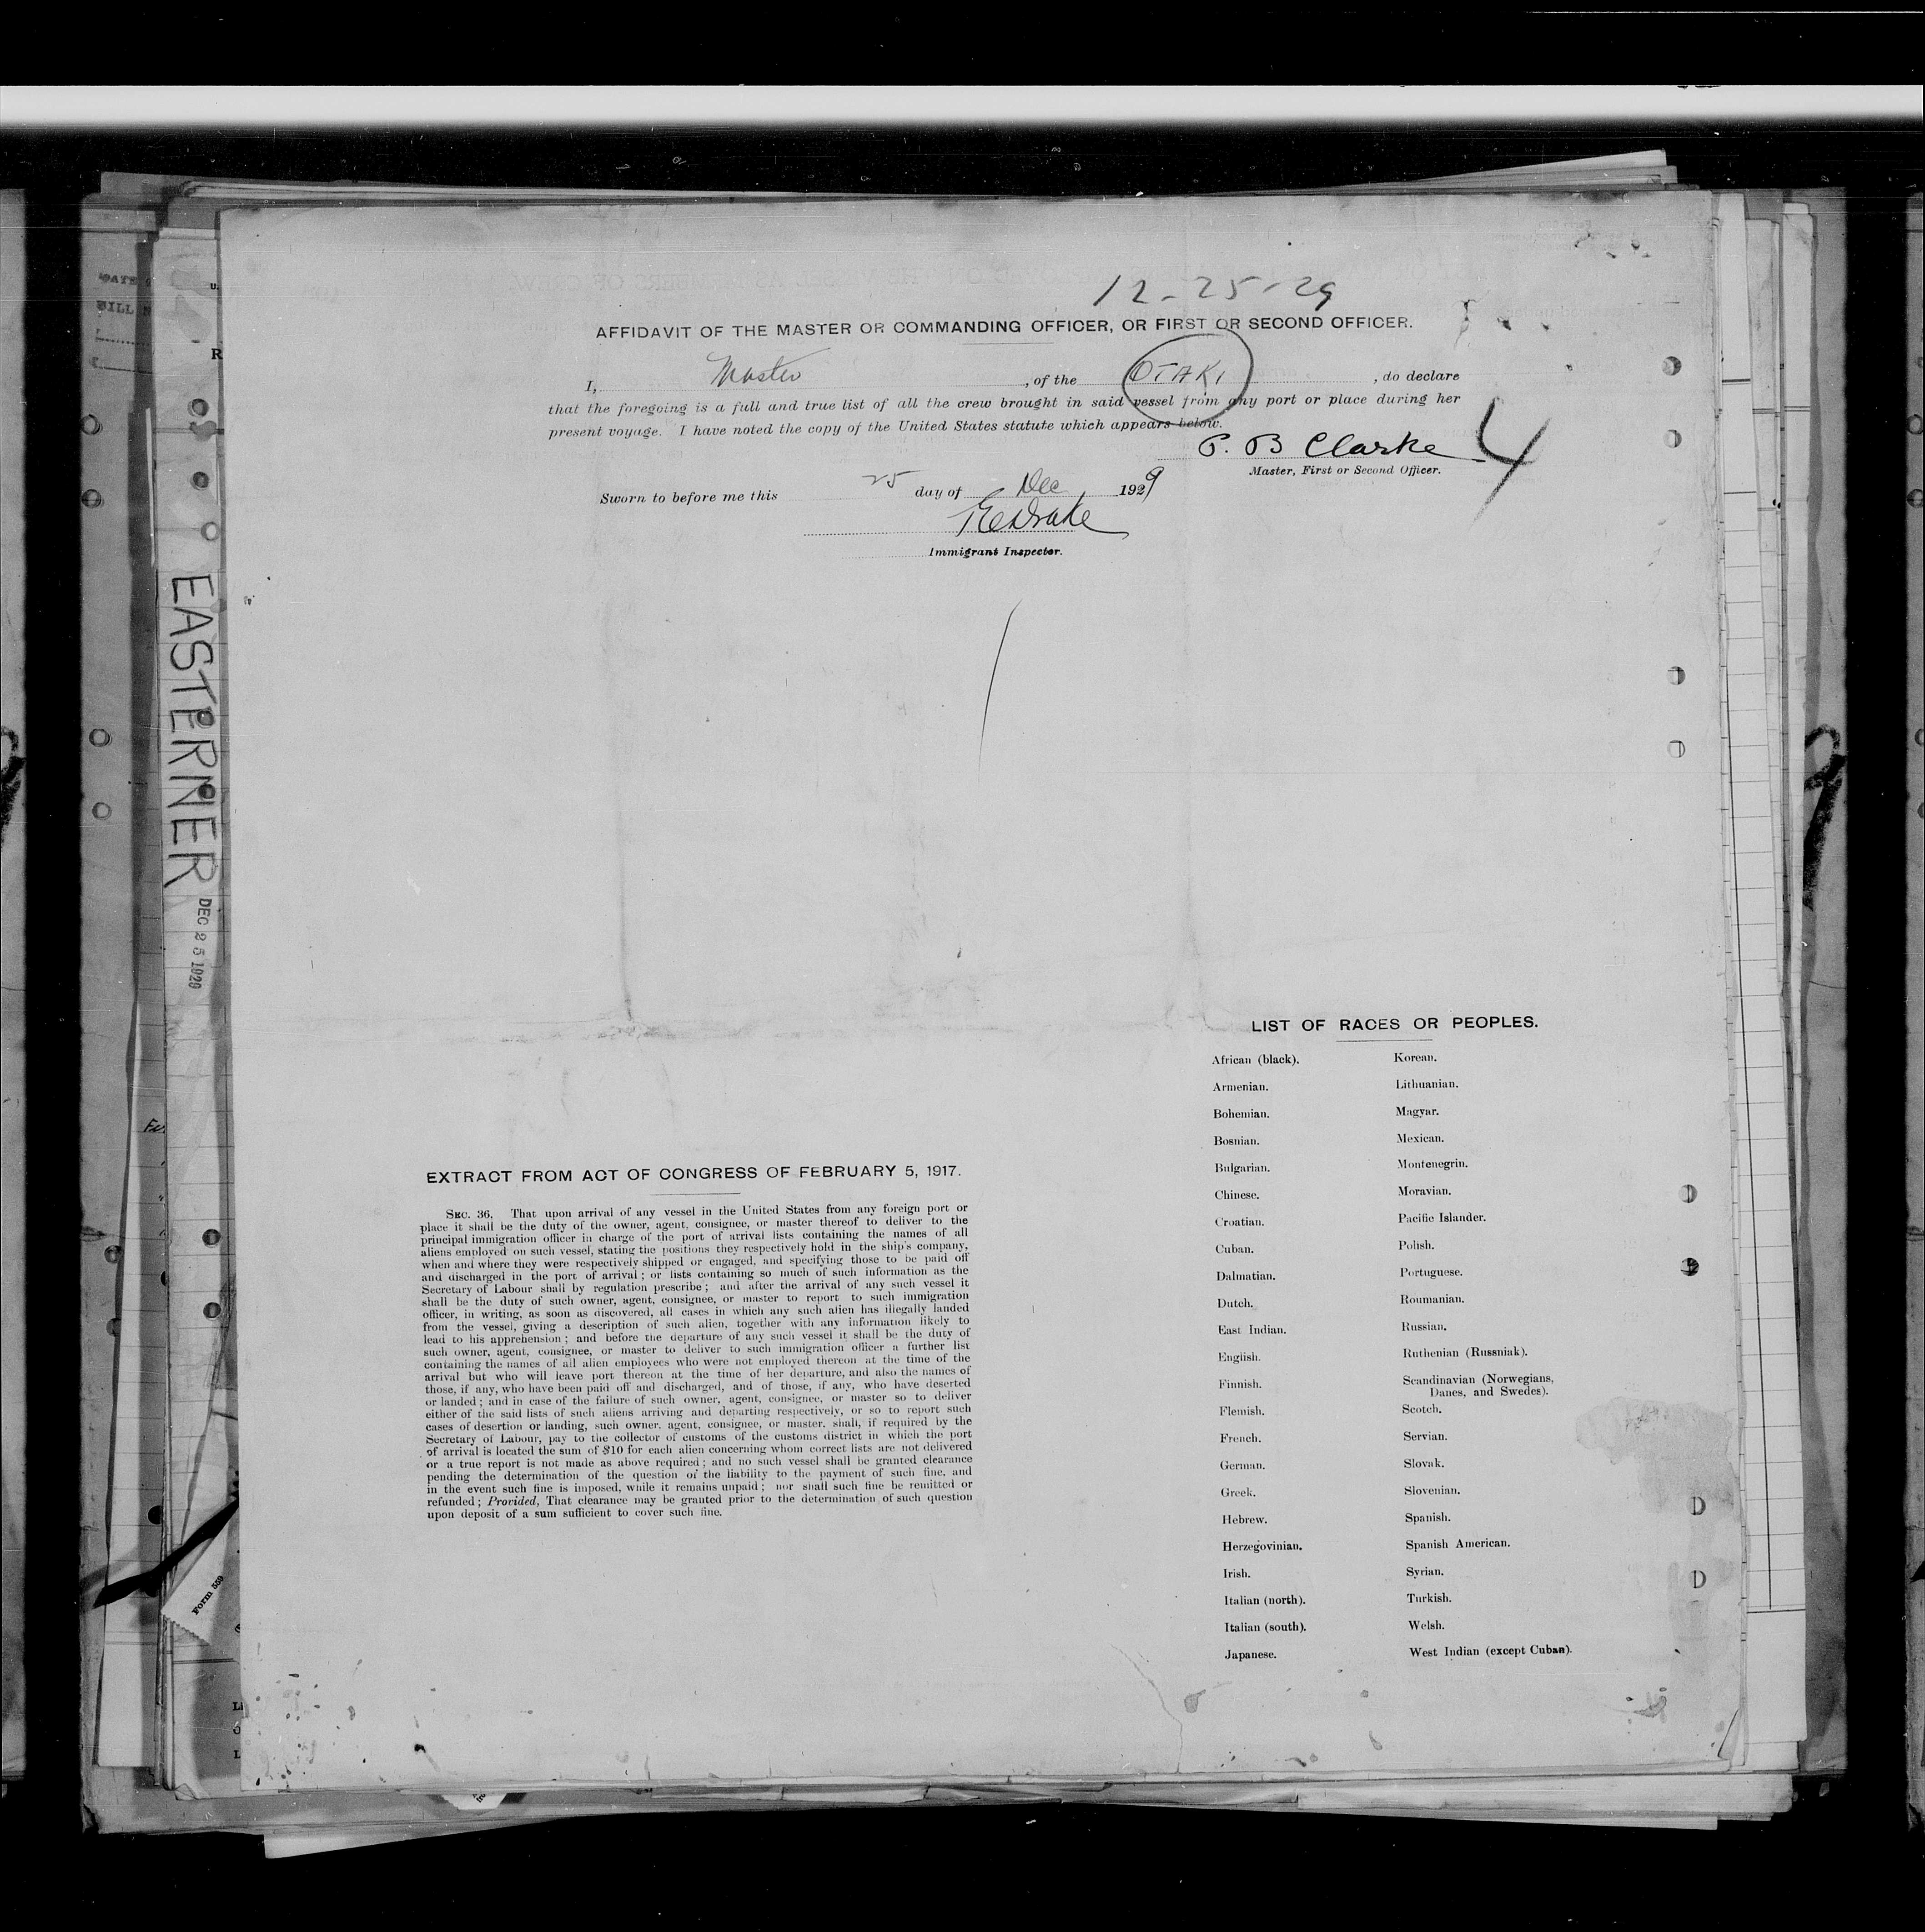 12-25-29
AFFIDAVIT OF THE MASTER OR COMMANDING OFFICER, OR FIRST OR SECOND OFFICER.
I, Master, of the OTAKI, do declare
that the foregoing is a full and true list of all the crew brought in said vessel from any port or place during her
present voyage. I have noted the copy of the United States statute which appears below.
P. B Clarke
4
Master, First or Second Officer.
Sworn to before me this 25 day of Dec, 1929
Drake
Immigrant Inspector.
EASTERNER
DEC 25 1929
EXTRACT FROM ACT OF CONGRESS OF FEBRUARY 5, 1917.
SEC. 36. That upon arrival of any vessel in the United States from any foreign port or
place it shall be the duty of the owner, agent, consignee, or master thereof to deliver to the
principal immigration officer in charge of the port of arrival lists containing the names of all
aliens employed on such vessel, stating the positions they respectively hold in the ship's company,
when and where they were respectively shipped or engaged, and specifying those to be paid off
and discharged in the port of arrival; or lists containing so much of such information as the
Secretary of Labour shall by regulation prescribe; and after the arrival of any such vessel it
shall be the duty of such owner, agent, consignee, or master to report to such immigration
officer, in writing, as soon as discovered, all cases in which any such alien has illegally landed
from the vessel, giving a description of such alien, together with any information likely to
lead to his apprehension; and before the departure of any such vessel it shall be the duty of
such owner, agent, consignee, or master to deliver to such immigration officer a further list
containing the names of all alien employees who were not employed thereon at the time of the
arrival but who will leave port thereon at the time of her departure, and also the names of
those, if any, who have been paid off and discharged, and of those, if any, who have deserted
or landed; and in case of the failure of such owner, agent, consignee, or master so to deliver
either of the said lists of such aliens arriving and departing respectively, or so to report such
cases of desertion or landing, such owner. agent, consignee, or master. shall, if required by the
Secretary of Labour, pay to the collector of customs of the customs district in which the port
of arrival is located the sum of $10 for each alien concerning whom correct lists are not delivered
or a true report is not made as above required; and no such vessel shall be granted clearance
pending the determination of the question of the liability to the payment of such fine. and
in the event such fine is imposed, while it remains unpaid; nor shall such fine be remitted or
refunded; Provided, That clearance may be granted prior to the determination of such question
upon deposit of a sum sufficient to cover such fine.
LIST OF RACES OR PEOPLES.
African (black). Korean.
Armenian. Lithuanian.
Bohemian. Magyar.
Bosnian. Mexican.
Bulgarian. Montenegrin.
Chinese. Moravian.
Croatian. Pacific Islander.
Cuban. Polish.
Dalmatian. Portuguese.
Dutch. Roumanian.
East Indian. Russian.
English. Ruthenian (Russniak).
Finnish. Scandinavian (Norwegians,
Danes, and Swedes).
Flemish. Scotch.
French. Servian.
German. Slovak.
Greek. Slovenian.
Hebrew. Spanish.
Herzegovinian. Spanish American.
Irish. Syrian.
Italian (north). Turkish.
Italian (south). Welsh.
Japanese. West Indian (except Cuban).
Form 559